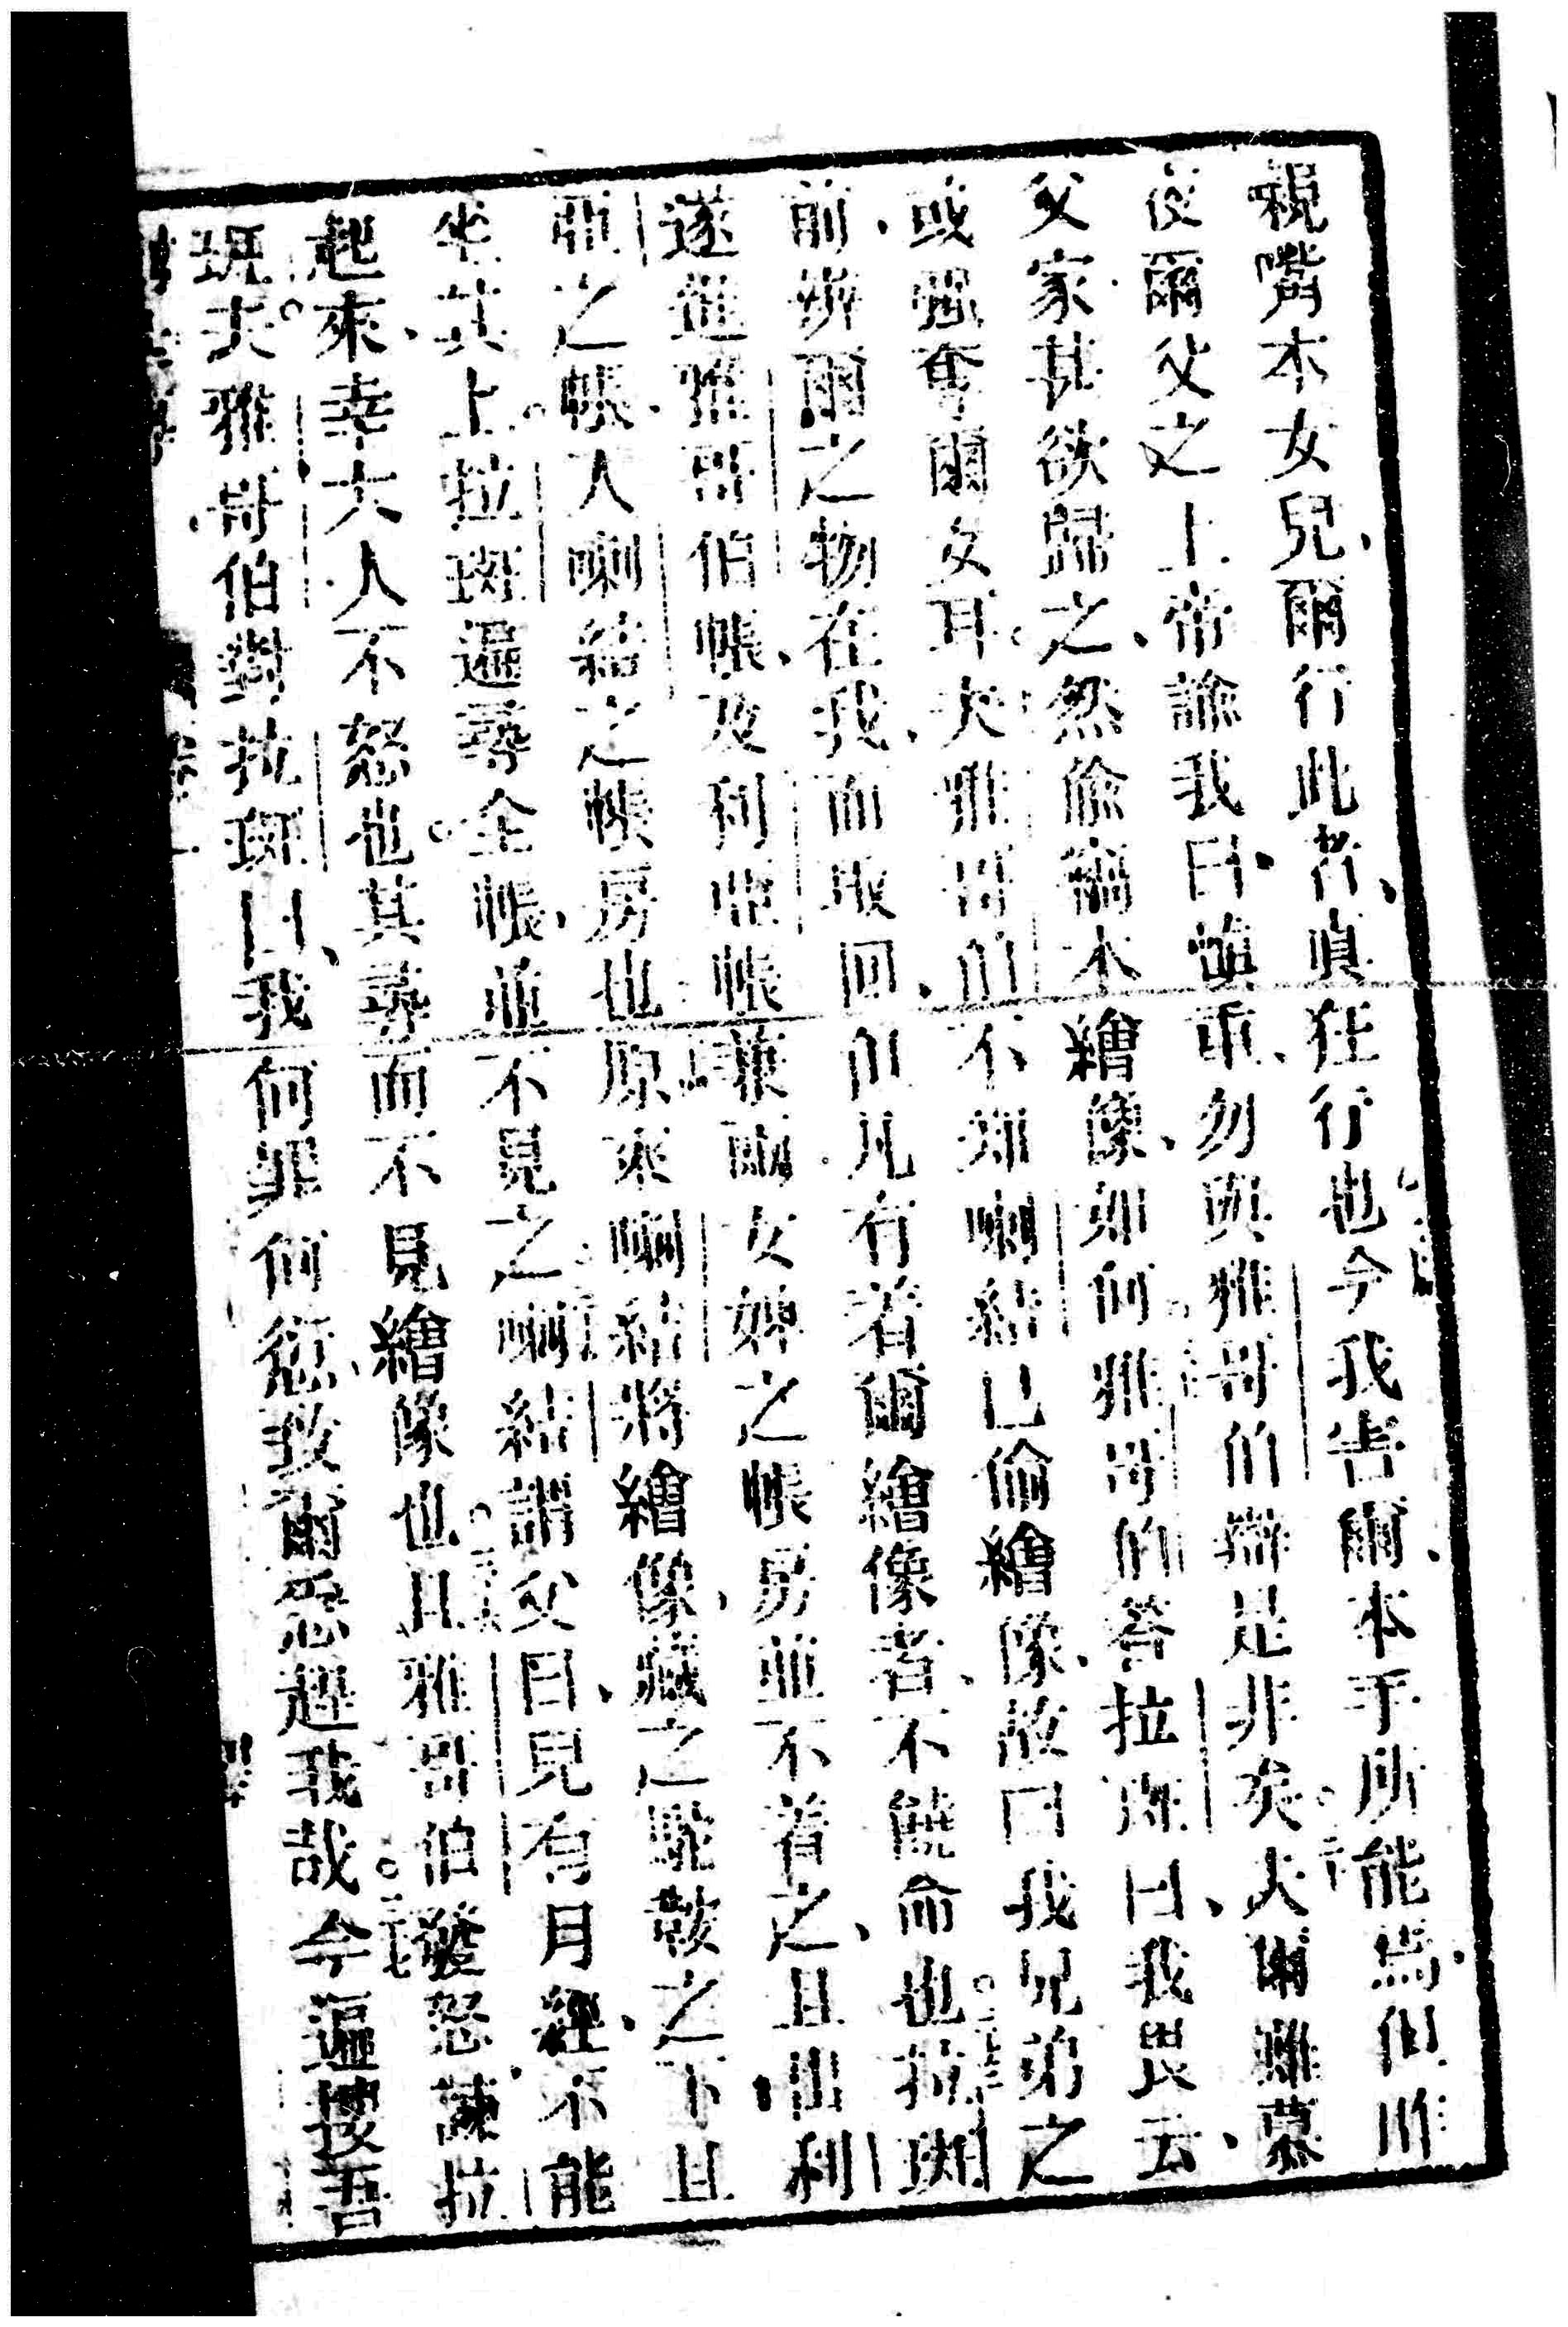 親嘴本女兒、爾行此者、眞狂行也今我害爾、本手所能焉、但昨
夜爾父之上帝諭我曰、愼重、勿與雅哥伯辯是非矣。夫爾雖慕
父家甚欲歸之、然偷爾本繪像、如何。雅哥伯答拉班曰、我畏云、
或强奪爾女耳。夫雅哥伯不知喇結已偷繪像、故曰我兄弟之
前、辨爾之物在我、而取回、但凡有着爾繪像者、不饒命也。拉班
遂進雅哥伯帳、及利亞帳、兼兩女婢之帳房並不着之、且出利
亞之帳、入喇結之帳房也。原來喇結將繪像、藏之駝鼓之下且
坐其上。拉班遍尋全帳、並不見之。喇結謂父曰、見有月經、不能
起來、幸大人不怒也。其尋而不見繪像也。且雅哥伯發怒、諫拉
班夫。雅哥伯對拉班曰、我何罪何愆、致爾忿趕我哉。今遍搜吾